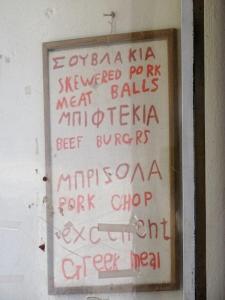 ΣΟΥΒΛΑΚΙΑ
SKEWERED PORK
MEAT BALLS
ΜΠΙΦΤΕΚΙΑ
BEEF BURGRS
ΜΠΡΙΣΟΛΑ
PORK CHOP
excellent
Greek meal